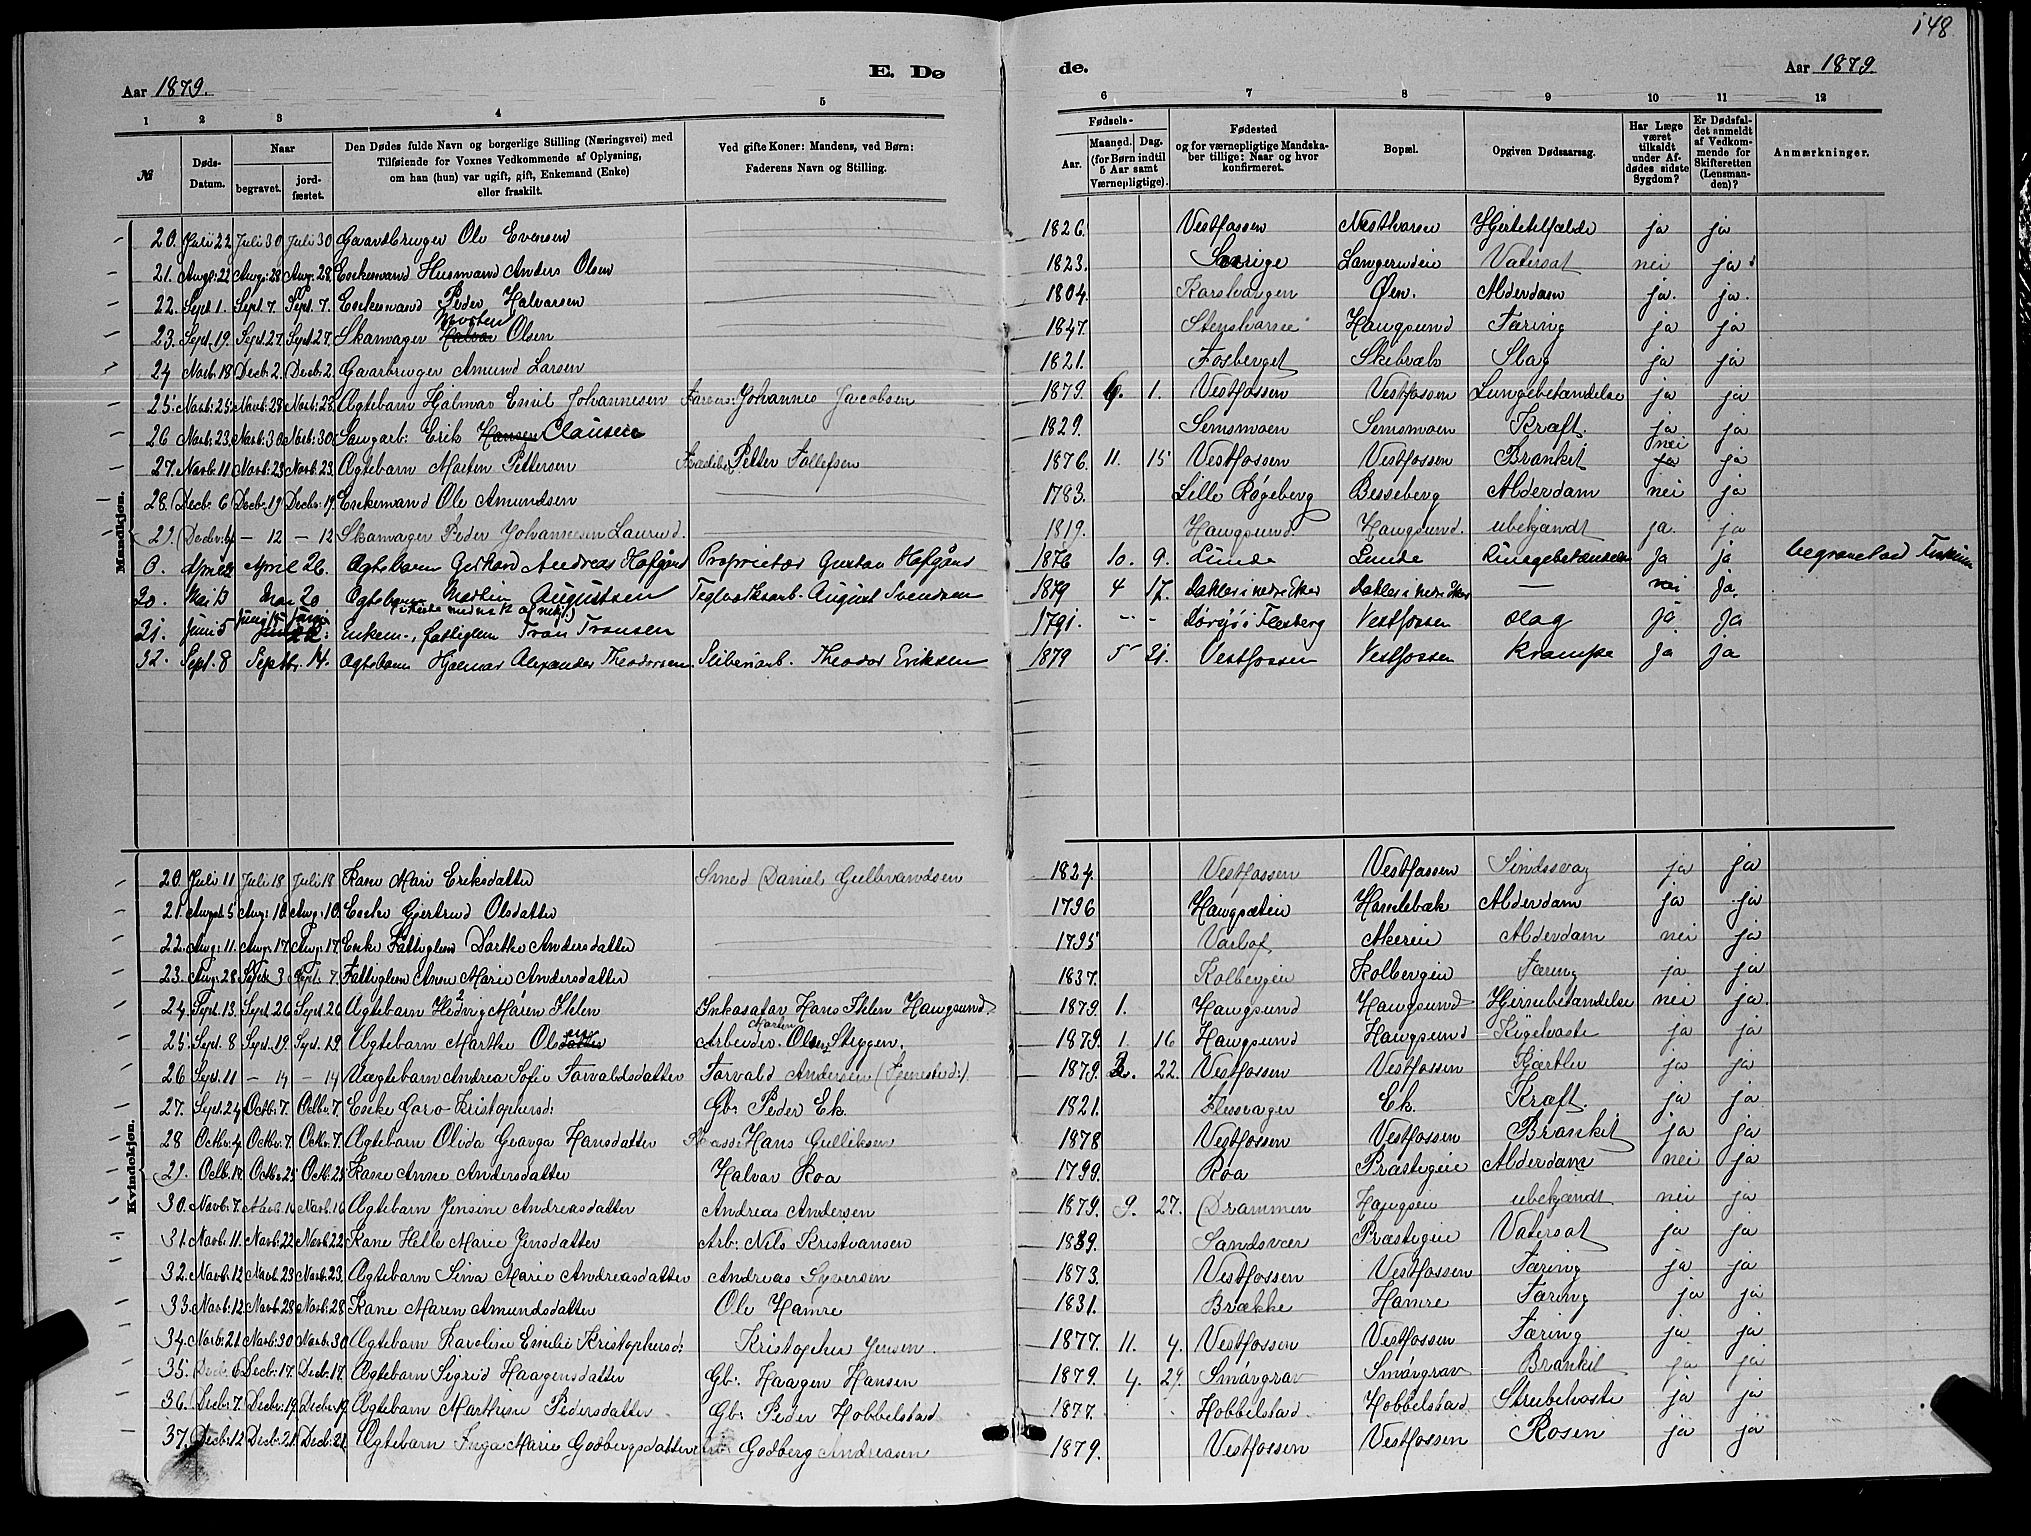 148
Aar 1879. E. Dø de. Aar 1879.
1 2 3 4 5 6 7 8 9 10 11 12
№ Døds-Datum. Naar begravet. jord-fæstet. Den Dødes fulde Navn og borgerlige Stilling (Næringsvei) med Tilføiende for Voxnes Vedkommende af Oplysning, om han (hun) var ugift, gift, Enkemand (Enke) eller fraskilt. Ved gifte Koner: Mandens, ved Børn: Faderens Navn og Stilling. Fødsels- Aar. Maaned. Dag. (for Børn indtil 5 Aar samt Værnepligtige). Fødested og for værnepligtige Mandskaber tillige: Naar og hvor konfirmeret. Bopæl. Opgiven Dødsaarsag. Har Læge været tilkaldt under Afdødes sidste Sygdom? Er Dødsfaldet anmeldt af Vedkommende for Skifteretten (Lensmanden)? Anmærkninger.
Mandkjøn.
20. Juli 22 Juli 30 Juli 30 Gaardbruger Ole Evensen 1826. Vestfossen Hjertetilfælde ja ja
21. Aug. 22 Aug. 28 Aug. 28. Enkemand Husmand Anders Olsen 1823. Vatersot nei ja
22. Sept 1. Sept. 7. Sept. 7. Enkemand Peder Halvorsen 1804. Øen. Alderdom ja. ja.
23. Sept. 19. Sept. 27 Sept. 27. Skomager Halvor Morten Olsen 1847. Haugsund Tæring ja ja
24 Novb. 18 Decb. 2. Decb. 2. Gaarbruger Amund Larsen 1821. Fosberget Slag ja ja
25. Novb: 25 Novb: 28 Novb: 28. Ægtebarn Hjalmar Emil Johannesen Johannes Jacobsen 1879. 1. Vestfossen Vestfossen Lungebetændelse ja ja
26 Novb: 23. Novb: 30 Novb: 30 Erik Hansen Clausen 1829. Semsmoen Semsmoen Kræft. ja ja
27. Novb. 11 Novb. 23 Novb. 23. Ægtebarn Morten Pettersen Petter Tollefsen 1876. 11. 15 Vestfossen Vestfossen Brankit nei ja ja
28. Decb. 6 Decb. 19 Decb. 19. Enkemand Ole Amundsen 1783. Lille Røgeberg Besseberg Alderdom nei ja
29. — 12 — 12 Skomager Peder Johannesen Laurud. 1819. Haugsund. Haugsund. ubekjendt ja. ja
0. April April 26. Ægtebarn Gerhard Andreas Hofgård Proprietær Gustav Hofgård 1876 10. 9. Lunde Lunde Lungebetændelse ja ja begravet ved Fiskum
30. Mai 13 Mai 20 Ægtebarn Martin Augustsen Teglverksarb. August Svendsen 1879 4 17. — nei ja.
31. Juni 5 Enkem., fattiglem Tron Tronsen 1791. - - i Flesberg Vestfossen slag ja ja
32. Sept. 8 Septbr. 14. Ægtebarn Hjalmar Alexander Theodorsen Sliberiarb. Theodor Eriksen 1879 5 21. Vestfossen Vestfossen krampe ja ja
Kvindekjøn.
20. Juli 11 Juli 18 Juli 18 Kone Mari Eriksdatter Smed Daniel Gulbrandsen 1824. Vestfossen Vestfossen Sindssvag ja ja
21. Augst 5 Aug: 10 Aug: 10. Enke Gjertrud Olsdatter 1796 Hamlebæk Alderdom ja ja
22. Aug: 11. Aug: 17 Aug: 17. Enke Fattiglem Dorthe Andersdatter 1795 Alderdom nei ja
23. Aug: 28 Sept. 3 Sept. 7. Fattiglem Anne Marie Andersdatter 1837. Kolbergeie Kolbergeie Tæring ja ja
24. Sept. 13. Sept. 20 Sept. 20 Ægtebarn Hedvig Måren Iklen Inkasatør Hans Iklen Haugsund 1879. 1. Haugsund Haugsund Hjernebetændelse nei ja.
25. Sept. 8 Sept. 19 Sept. 19 Ægtebarn Marthe Olsdatter Arbeider. Morten Olsen Styggen. 1879. 1. 16 Haugsund Haugsund Kighoste ja ja
26 Sept. 11 — 14 — 14 Uægtebarn Andrea Sofie Torvaldsdatter Torvald Andersen 1879. 2. 22. Vestfossen Vestfossen Kjertler ja ja
27. Sept. 24 Octb. 7. Octb. 7. Enke Goro Kristophersd: Gb: Peder Ek. 1821. Ek. Kræft. ja ja
28 Octb. 4. Octb. 7. Octb. 7. Ægtebarn Olida Georga Hansdatter Hans Gulliksen 1878 Vestfossen Vestfossen Brankit ja ja
29. Octb. 14. Octb. 25 Octb. 25 Kone Anne Andersdatter Halvor Roa 1799. Roa Præstegeie Alderdom nei ja
30. Novb. 7. Novb. 16 Novb. 16 Ægtebarn Jensine Andreasdatter Andreas Andersen 1879. 9. 27. Drammen ubekjendt nei ja
31. Novb. 11. Novb. 22 Novb. 22 Kone Helle Marie Jensdatter Arb: Nils Kristiansen 1839. Sandsvær Præstegeie Vatersot ja ja
32. Novb. 12 Novb. 23 Novb. 23. Ægtebarn Sina Marie Andreasdatter Andreas Syversen 1873. Vestfossen Vestfossen Tæring ja ja
33. Novb. 12. Novb. 28 Novb. 28 Kone Maren Amundsdatter Ole Hamre 1831. Brække Hamre Tæring ja ja
34. Novb. 21. Novb. 30 Novb. 30 Ægtebarn Karoline Emelie Kristophersd: Kristopher Jensen. 1877. 11. 4. Vestfossen Vestfossen Tæring ja ja
35. Decb. 6 Decb. 17. Decb. 17. Ægtebarn Sigrid Haagensdatter Gb: Haagen Hansen 1879. 4. 29. Smørgrav Smørgrav Brankit ja ja
36. Decb. 7. Decb. 19. Decb. 19. Ægtebarn Mathise Pedersdatter Gb. Peder Hobbelstad 1877. Hobbelstad Hobbelstad Strubehoste ja ja
37. Decb. 12 Decb. 21 Decb. 21 Ægtebarn Inga Marie Godbergsdatter Godberg Andreasen 1879. Vestfossen Vestfossen Rosen ja ja